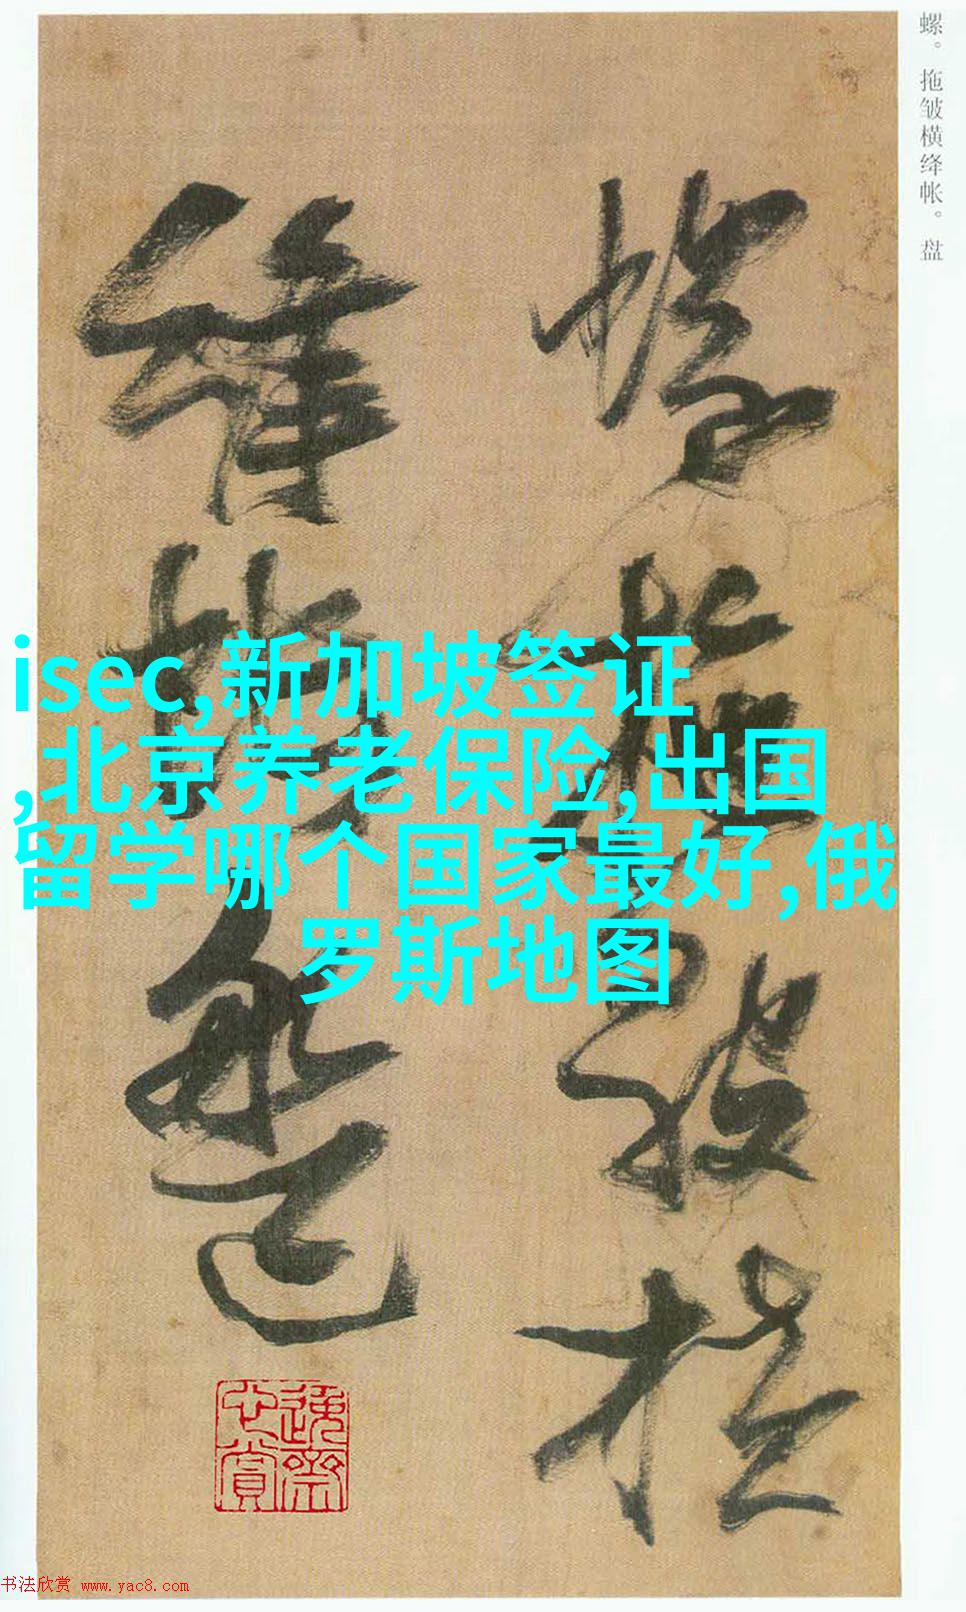 螺。拖皱横绛帐。盘
螺拖皱横
绛帐盘
isec,新加坡签证
,北京养老保险,出国
留学哪个国家最好,俄
罗斯地图
书法欣赏 www.yac8.com